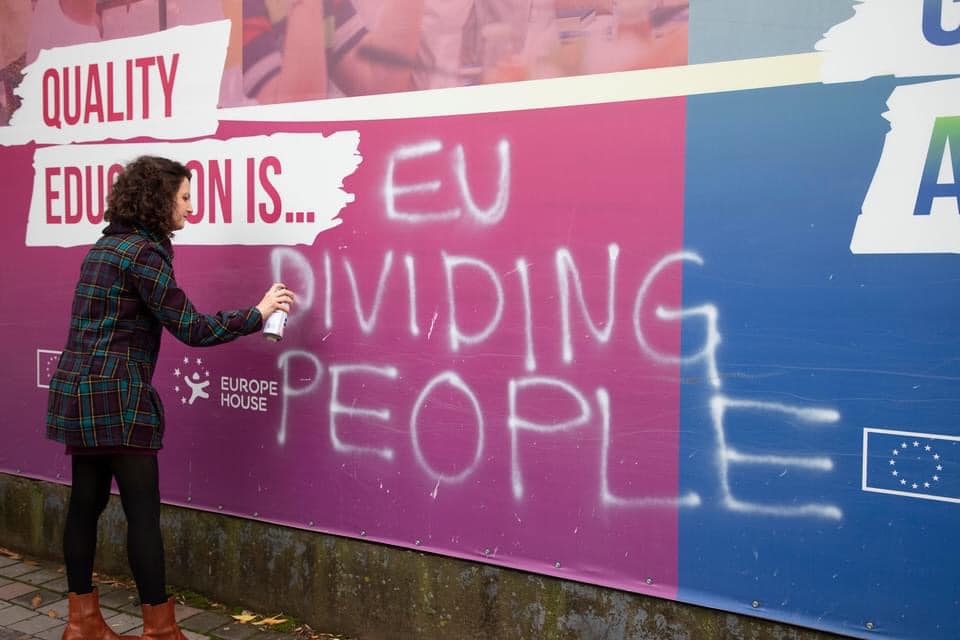 QUALITY
EDUC ON IS...
EU
DIVIDING
PEOPLE
EUROPE
HOUSE
A